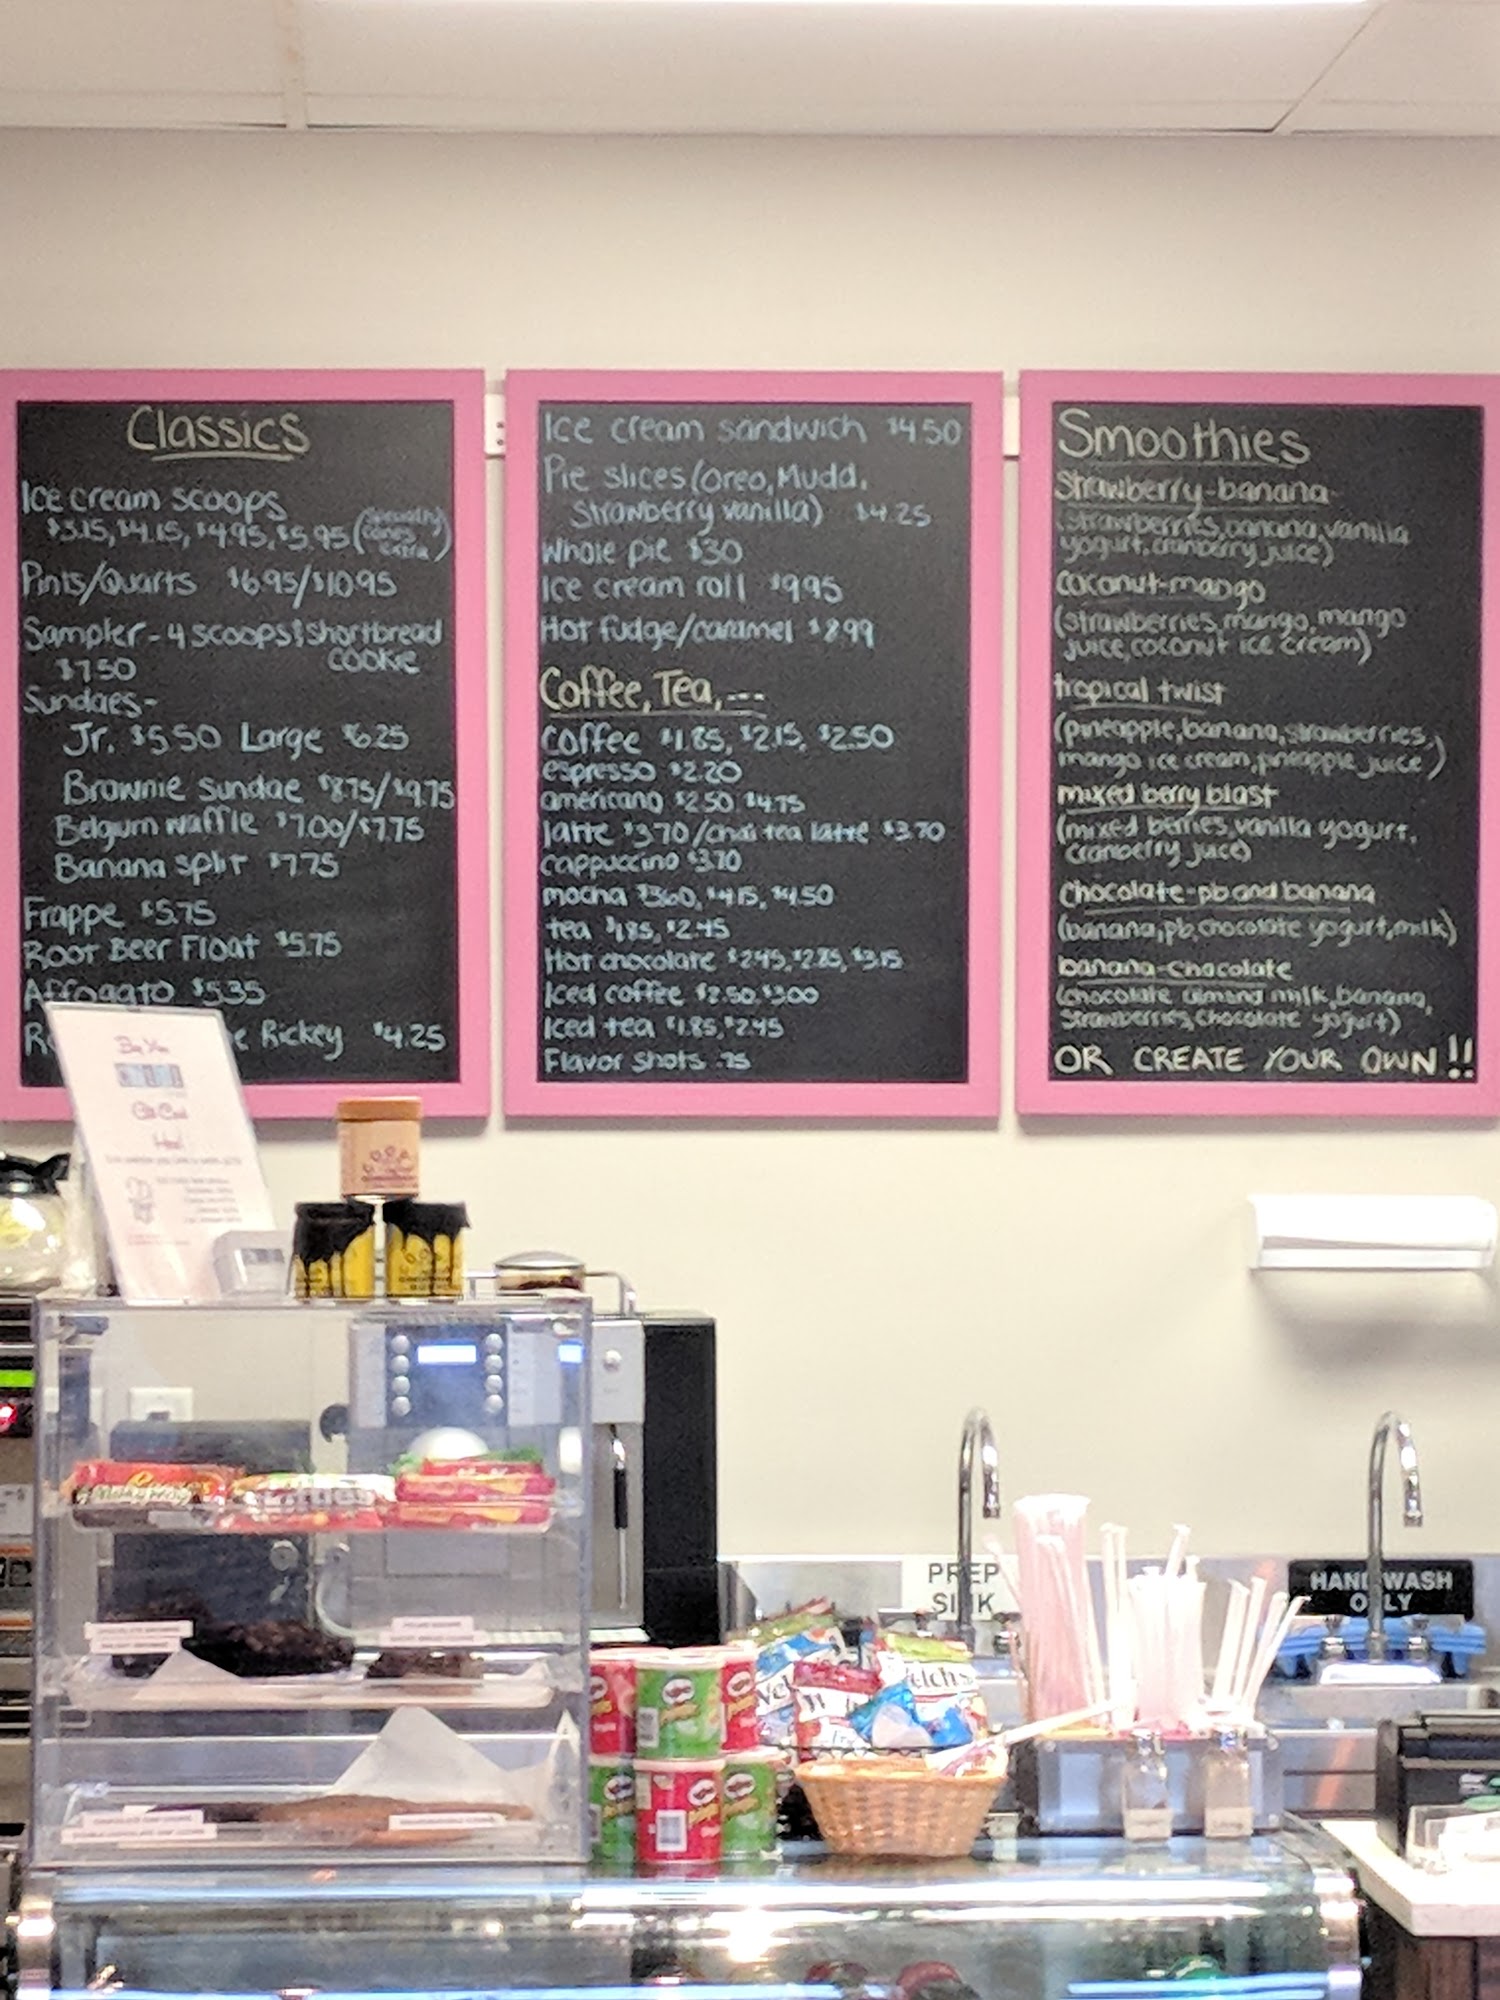 Classics
Ice cream scoops
$3.15, $4.15, $4.95, $5.95 (specialty
cones
extra)
Pints/Quarts $6.95/$10.95
Sampler - 4 scoops & shortbread
$7.50 cookie
Sundaes-
Jr. $5.50 Large $6.25
Brownie sundae $8.75/$9.75
Belgium waffle $7.00/$7.75
Banana split $7.75
Frappe $5.75
Root Beer Float $5.75
Affogato $5.35
Rickey $4.25
Ice cream sandwich $4.50
Pie slices (oreo, Mudd,
Strawberry vanilla) $4.25
Whole pie $30
Ice cream roll $9.95
Hot fudge/caramel $2.99
Coffee, Tea, ---
Coffee $1.85, $2.15, $2.50
espresso $2.20
americano $2.50 $4.75
latte $3.70/chai tea latte $3.70
cappuccino $3.70
mocha $3.60, $4.15, $4.50
tea $1.85, $2.45
Hot chocolate $2.45, $2.85, $3.15
Iced coffee $2.50, $3.00
Iced tea $1.85, $2.45
Flavor shots .75
Smoothies
Strawberry-banana-
(strawberries, banana, vanilla
yogurt, cranberry juice)
coconut-mango
(strawberries, mango, mango
juice, coconut ice cream)
tropical twist
(pineapple, banana, strawberries,
mango ice cream, pineapple juice)
mixed berry blast
(mixed berries, vanilla yogurt,
cranberry juice)
chocolate-pb and banana
(banana, pb, chocolate yogurt, milk)
banana-chocolate
(chocolate almond milk, banana,
strawberries, chocolate yogurt)
OR CREATE YOUR OWN!!
PREP
SINK
HAND WASH
ONLY
Welch's